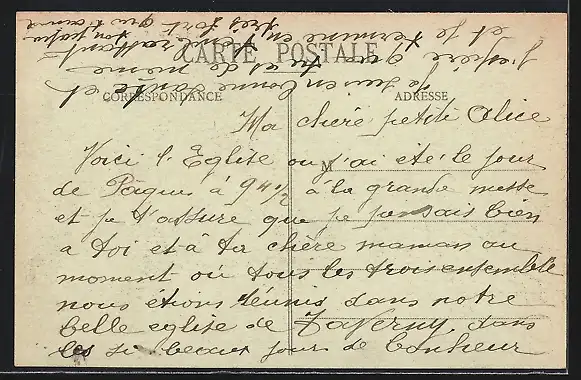 CARTE POSTALE
CORRESPONDANCE
ADRESSE
M
Ma chère petite Alice
Voici l'Eglise ou j'ai été le jour
de Pâques à 9 H 1/2 à la grande messe
et je t'assure que je pensais bien
a toi et à ta chère maman au
moment où tous les trois ensemble
nous etions réunis dans notre
belle eglise de Taverny dans
les si beaux jours de bonheur
Je suis en bonne santé et
j'espère que tu es de même
et je termine en t'embrassant
très fort ton papa
qui t'aime